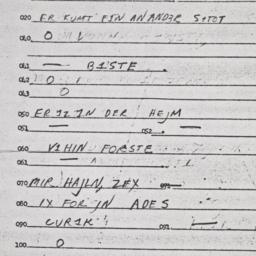 020 ER KUMT EIN AN ANDER STOT
010 0
011 — BISTE
012 0 1
013 0
050 ER IZ IN DER HEJM
051 — 052 —
060 VIHIN FORSTE
061 —
070 MIR HAJLN ZEX 071 —
080 IX FOR IN ADES
090 CURIK 091 —
100 0